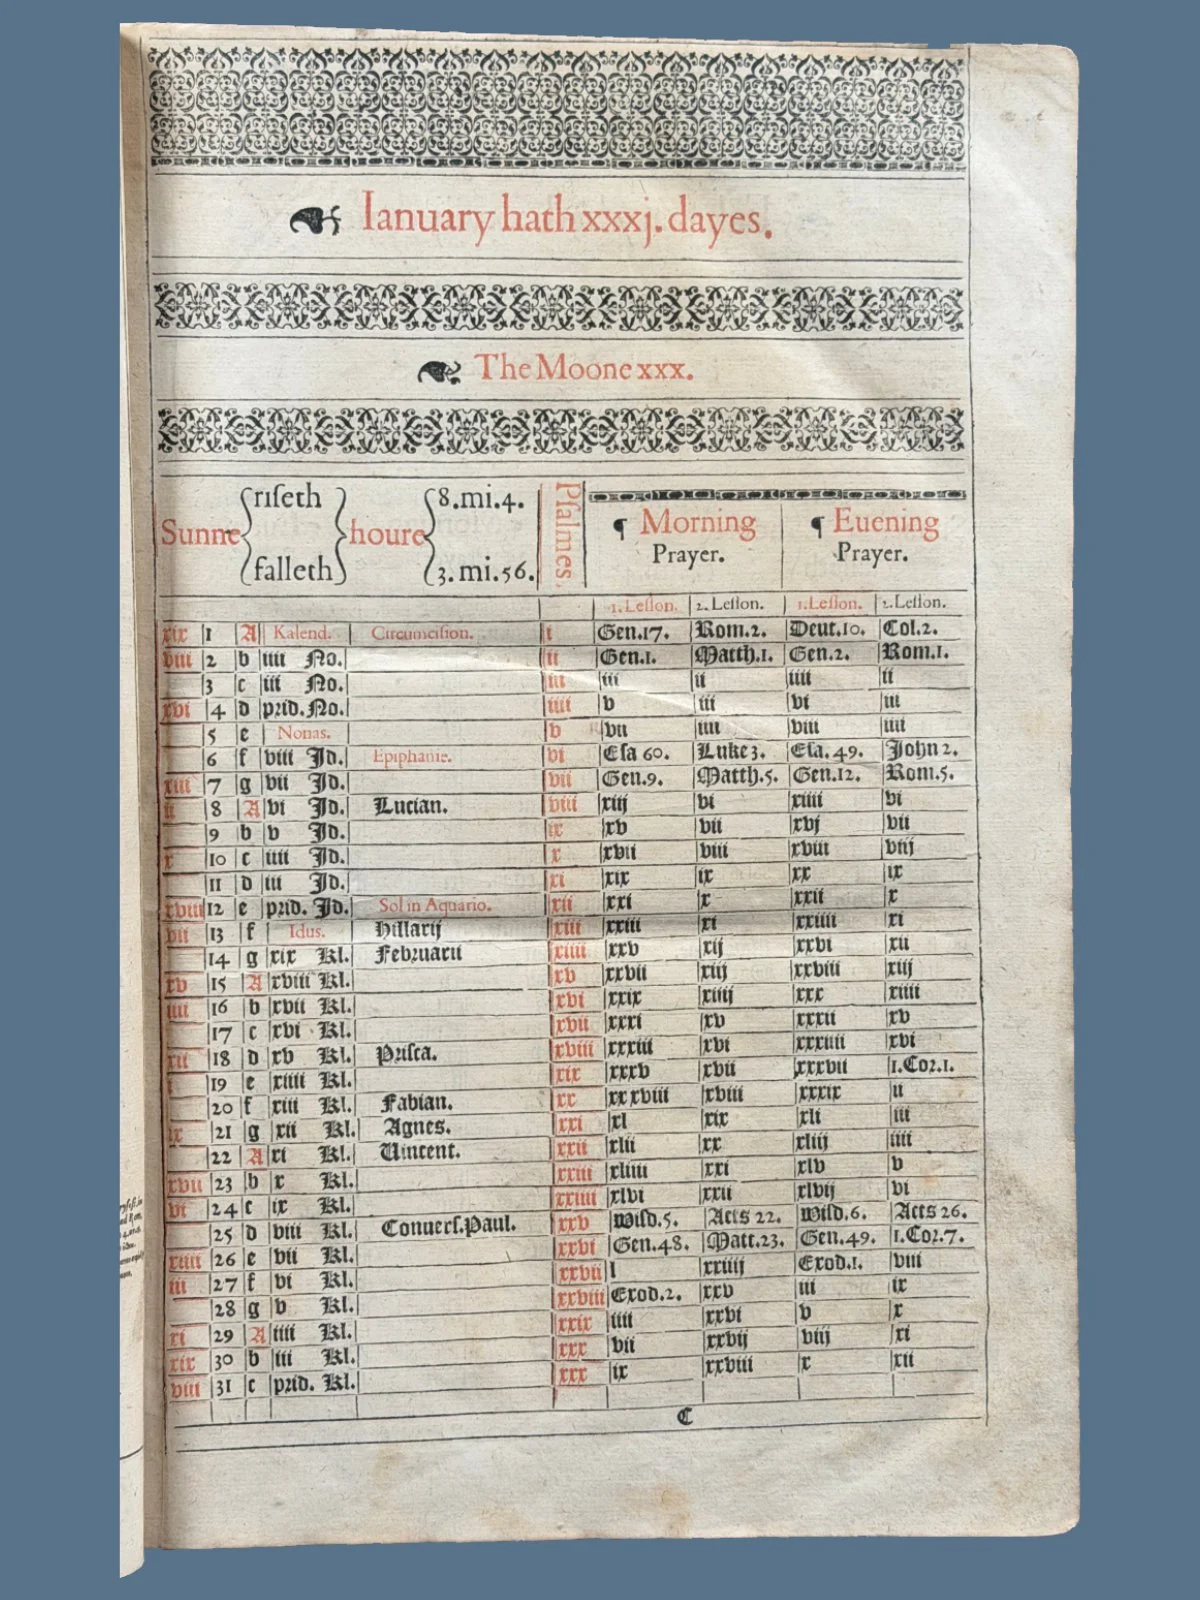 Ianuary hath xxxj. dayes.
The Moone xxx.
Sunne riſeth falleth houre 8.mi.4. 3.mi.56. Pſalmes. ¶ Morning Prayer. ¶ Euening Prayer.
1.Leſſon. 2.Leſſon. 1.Leſſon. 2.Leſſon.
xix 1 A Kalend. Circumciſion. i Gen.17. Rom.2. Deut.10. Col.2.
viii 2 b iiii No. ii Gen.1. Matth.1. Gen.2. Rom.1.
3 c iii No. iii iii ii iiii ii
xvi 4 d prid.No. iiii v iii vi iii
5 e Nonas. v vii iiii viii iiii
6 f viii Id. Epiphanie. vi Eſa 60. Luke 3. Eſa. 49. John 2.
xiii 7 g vii Id. vii Gen.9. Matth.5. Gen.12. Rom.5.
ii 8 A vi Id. Lucian. viii xiij vi xiiii vi
9 b v Id. ix xv vii xvj vii
x 10 c iiii Id. x xvii viii xviii viij
11 d iii Id. xi xix ix xx ix
xviii 12 e prid. Id. Sol in Aquario. xii xxi x xxii x
vii 13 f Idus. Hillarij xiii xxiii xi xxiiii xi
14 g xix Kl. Februarii xiiii xxv xij xxvi xii
xv 15 A xviii Kl. xv xxvii xiij xxviii xiij
iiii 16 b xvii Kl. xvi xxix xiiij xxx xiiii
17 c xvi Kl. xvii xxxi xv xxxii xv
xii 18 d xv Kl. Priſca. xviii xxxiii xvi xxxiiii xvi
i 19 e xiiii Kl. xix xxxv xvii xxxvii 1.Cor.1.
20 f xiii Kl. Fabian. xx xxxviii xviii xxxix ii
ix 21 g xii Kl. Agnes. xxi xl xix xli iii
22 A xi Kl. Uincent. xxii xlii xx xliij iiii
xvii 23 b x Kl. xxiii xliiii xxi xlv v
vi 24 c ix Kl. xxiiii xlvi xxii xlvij vi
25 d viii Kl. Conuerſ.Paul. xxv Wiſd.5. Acts 22. Wiſd.6. Acts 26.
xiiii 26 e vii Kl. xxvi Gen.48. Matt.23. Gen.49. 1.Cor.7.
iii 27 f vi Kl. xxvii l xxiiij Exod.1. viii
28 g v Kl. xxviii Exod.2. xxv iii ix
xi 29 A iiii Kl. xxix iiii xxvi v x
xix 30 b iii Kl. xxx vii xxvij viij xi
viii 31 c prid. Kl. xxx ix xxviii x xii
C